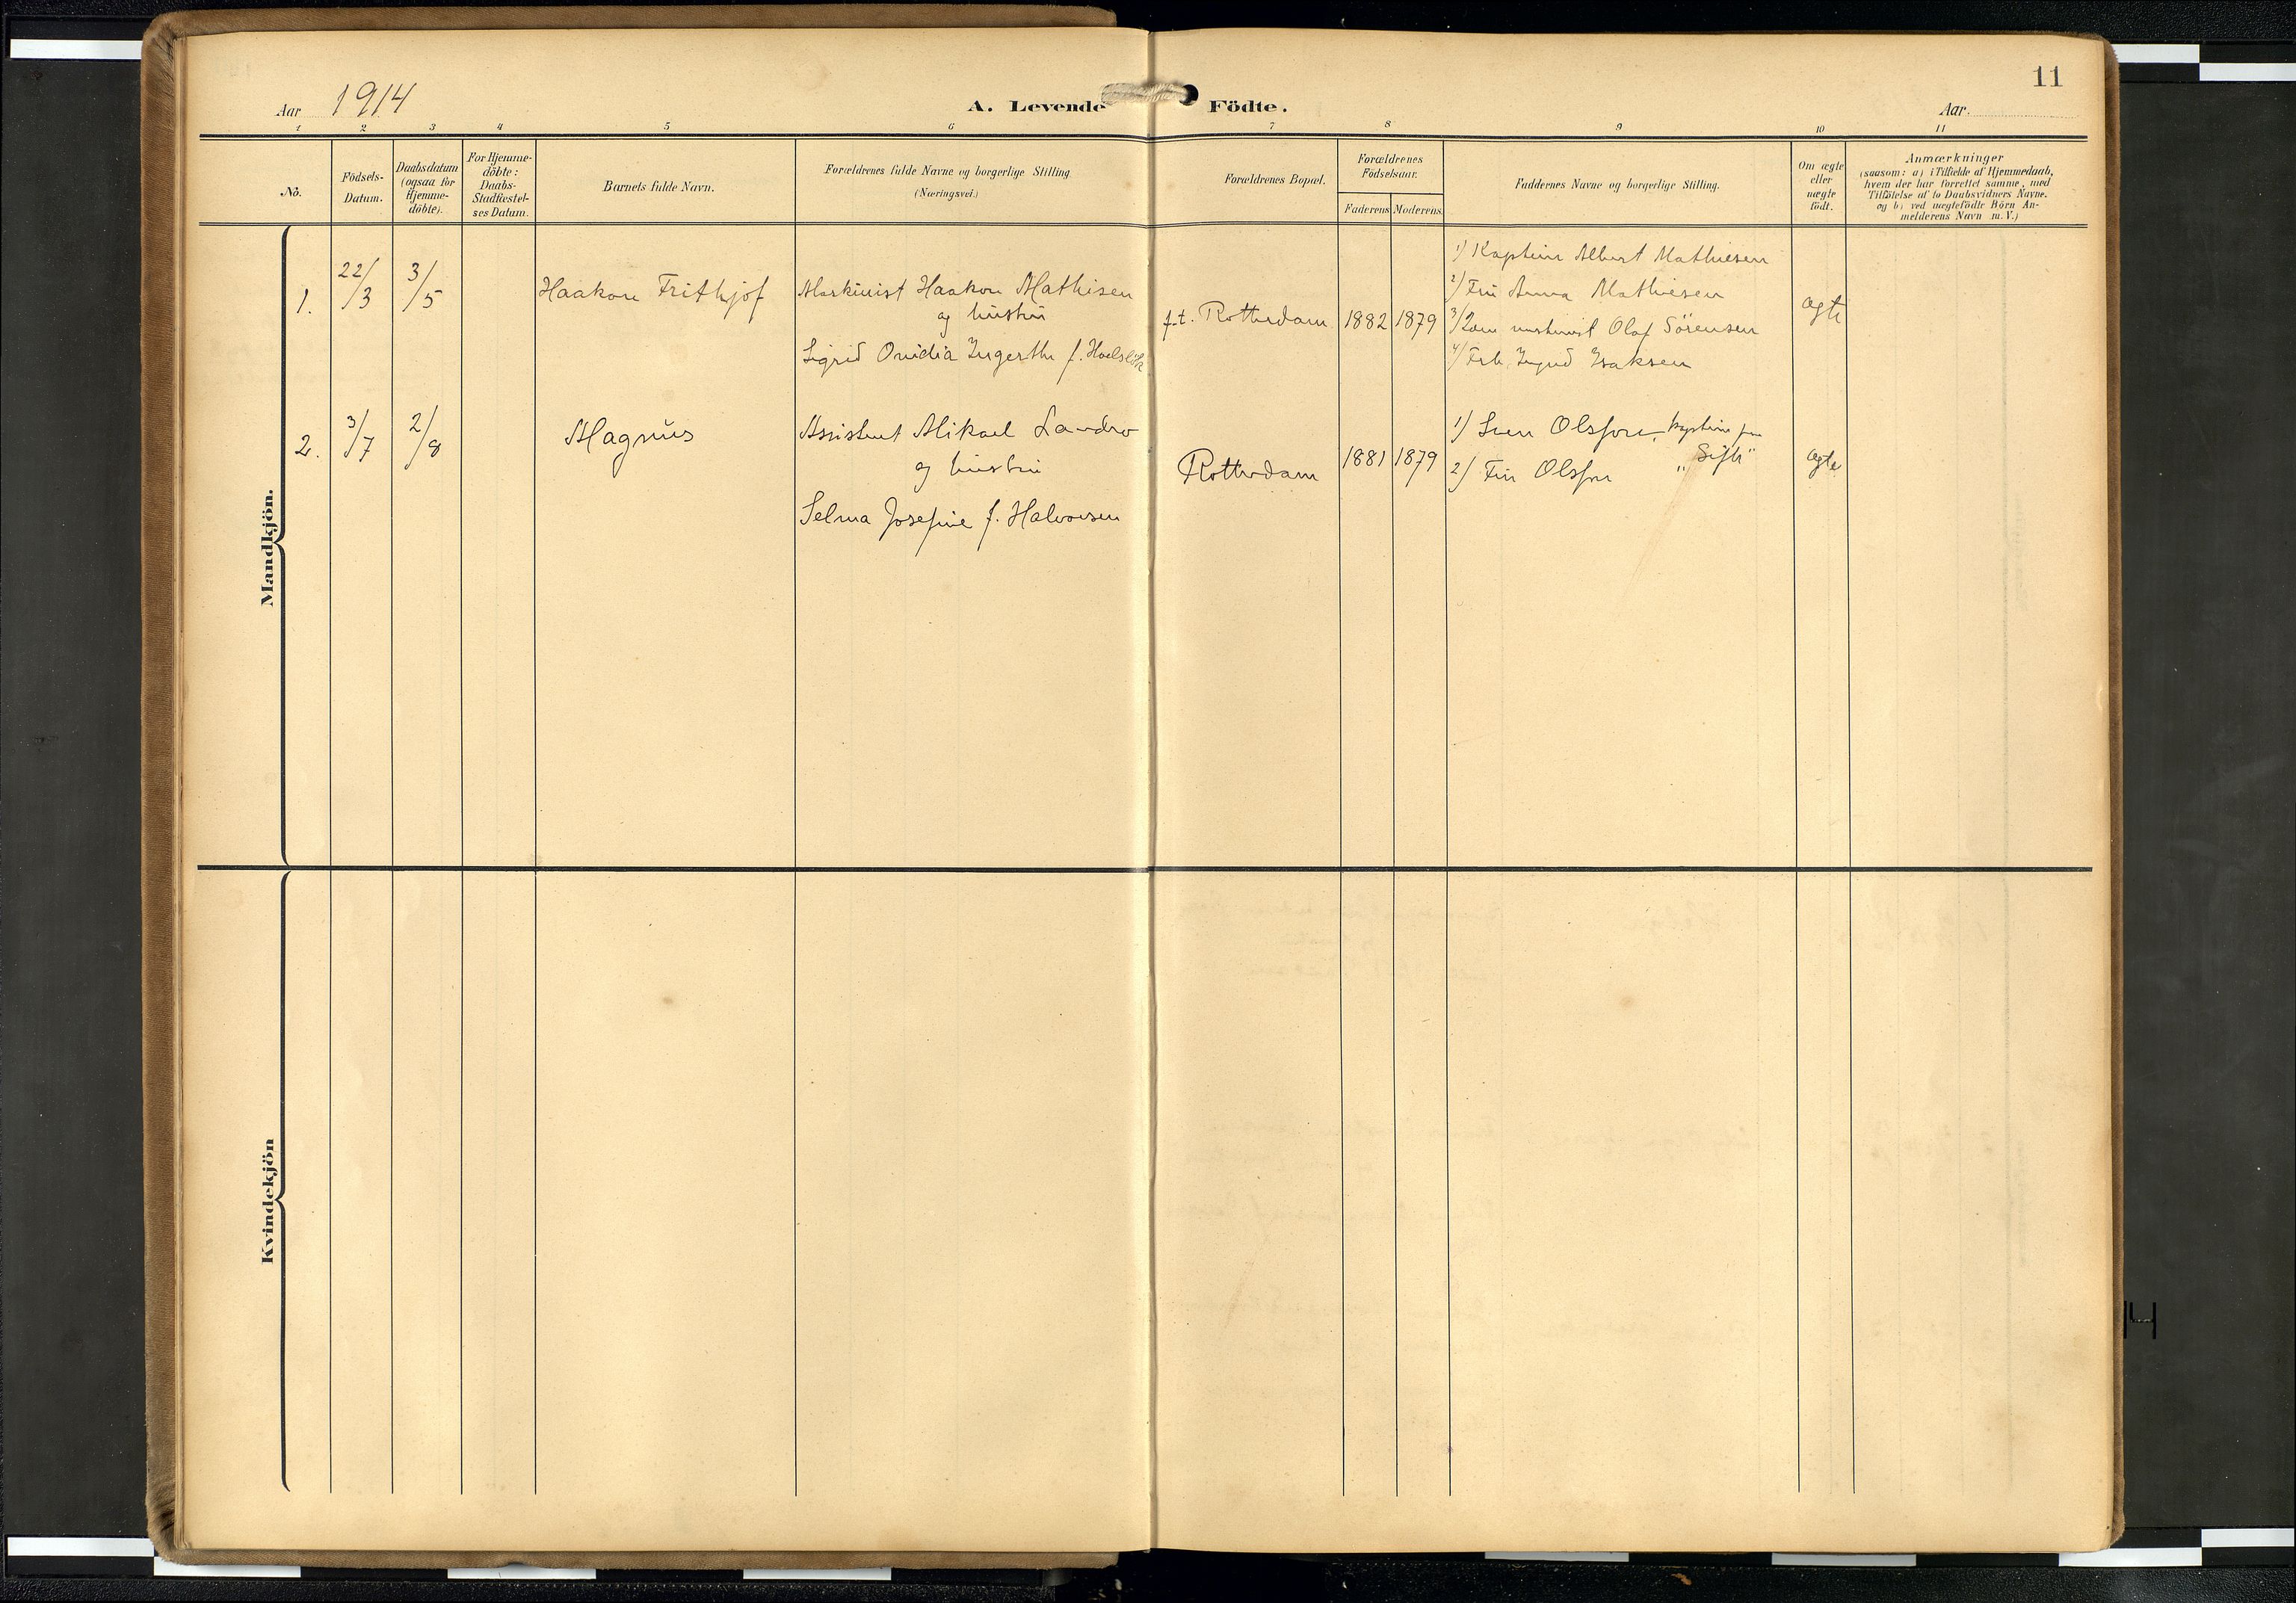 11
Aar 1914
A. Levende Födte.
Aar
1 2 3 4 5 6 7 8 9 10 11
No.
Födsels-
Datum.
Daabsdatum
(ogsaa for
Hjemme-
döbte).
For Hjemme-
döbte:
Daabs-
Stadfæstel-
ses Datum.
Barnets fulde Navn.
Forældrenes fulde Navne og borgerlige Stilling
(Næringsvei.)
Forældrenes Bopæl.
Forældrenes
Födselsaar.
Faderens Moderens.
Faddernes Navne og borgerlige Stilling.
Om ægte
eller
uægte
födt.
Anmærkninger
(saasom: a) i Tilfælde af Hjemmedaab,
hvem der har forrettet samme, med
Tilföielse af to Daabsvidners Navne.
og b) ved uægtefödte Börn An-
melderens Navn m. V.)
Mandkjön.
1.
22/3
3/5
Haakon Frithjof
Maskinist Haakon Mathisen
og hustru
Sigrid Ovidia Ingerthe f.
f.t. Rotterdam
1882
1879
1) Kaptein Albert Mathiesen
2) Fru Anna Mathiesen
3) 2den Olaf Sörensen
4) Frk. Isaksen
ægte
2.
3/7
2/8
Magnus
Assistent Mikael Landro
og hustru
Selma Josefine f. Halvorsen
Rotterdam
1881
1879
1) Sven Olsson, kaptein
2) Fru Olsson
ægte
Kvindekjön